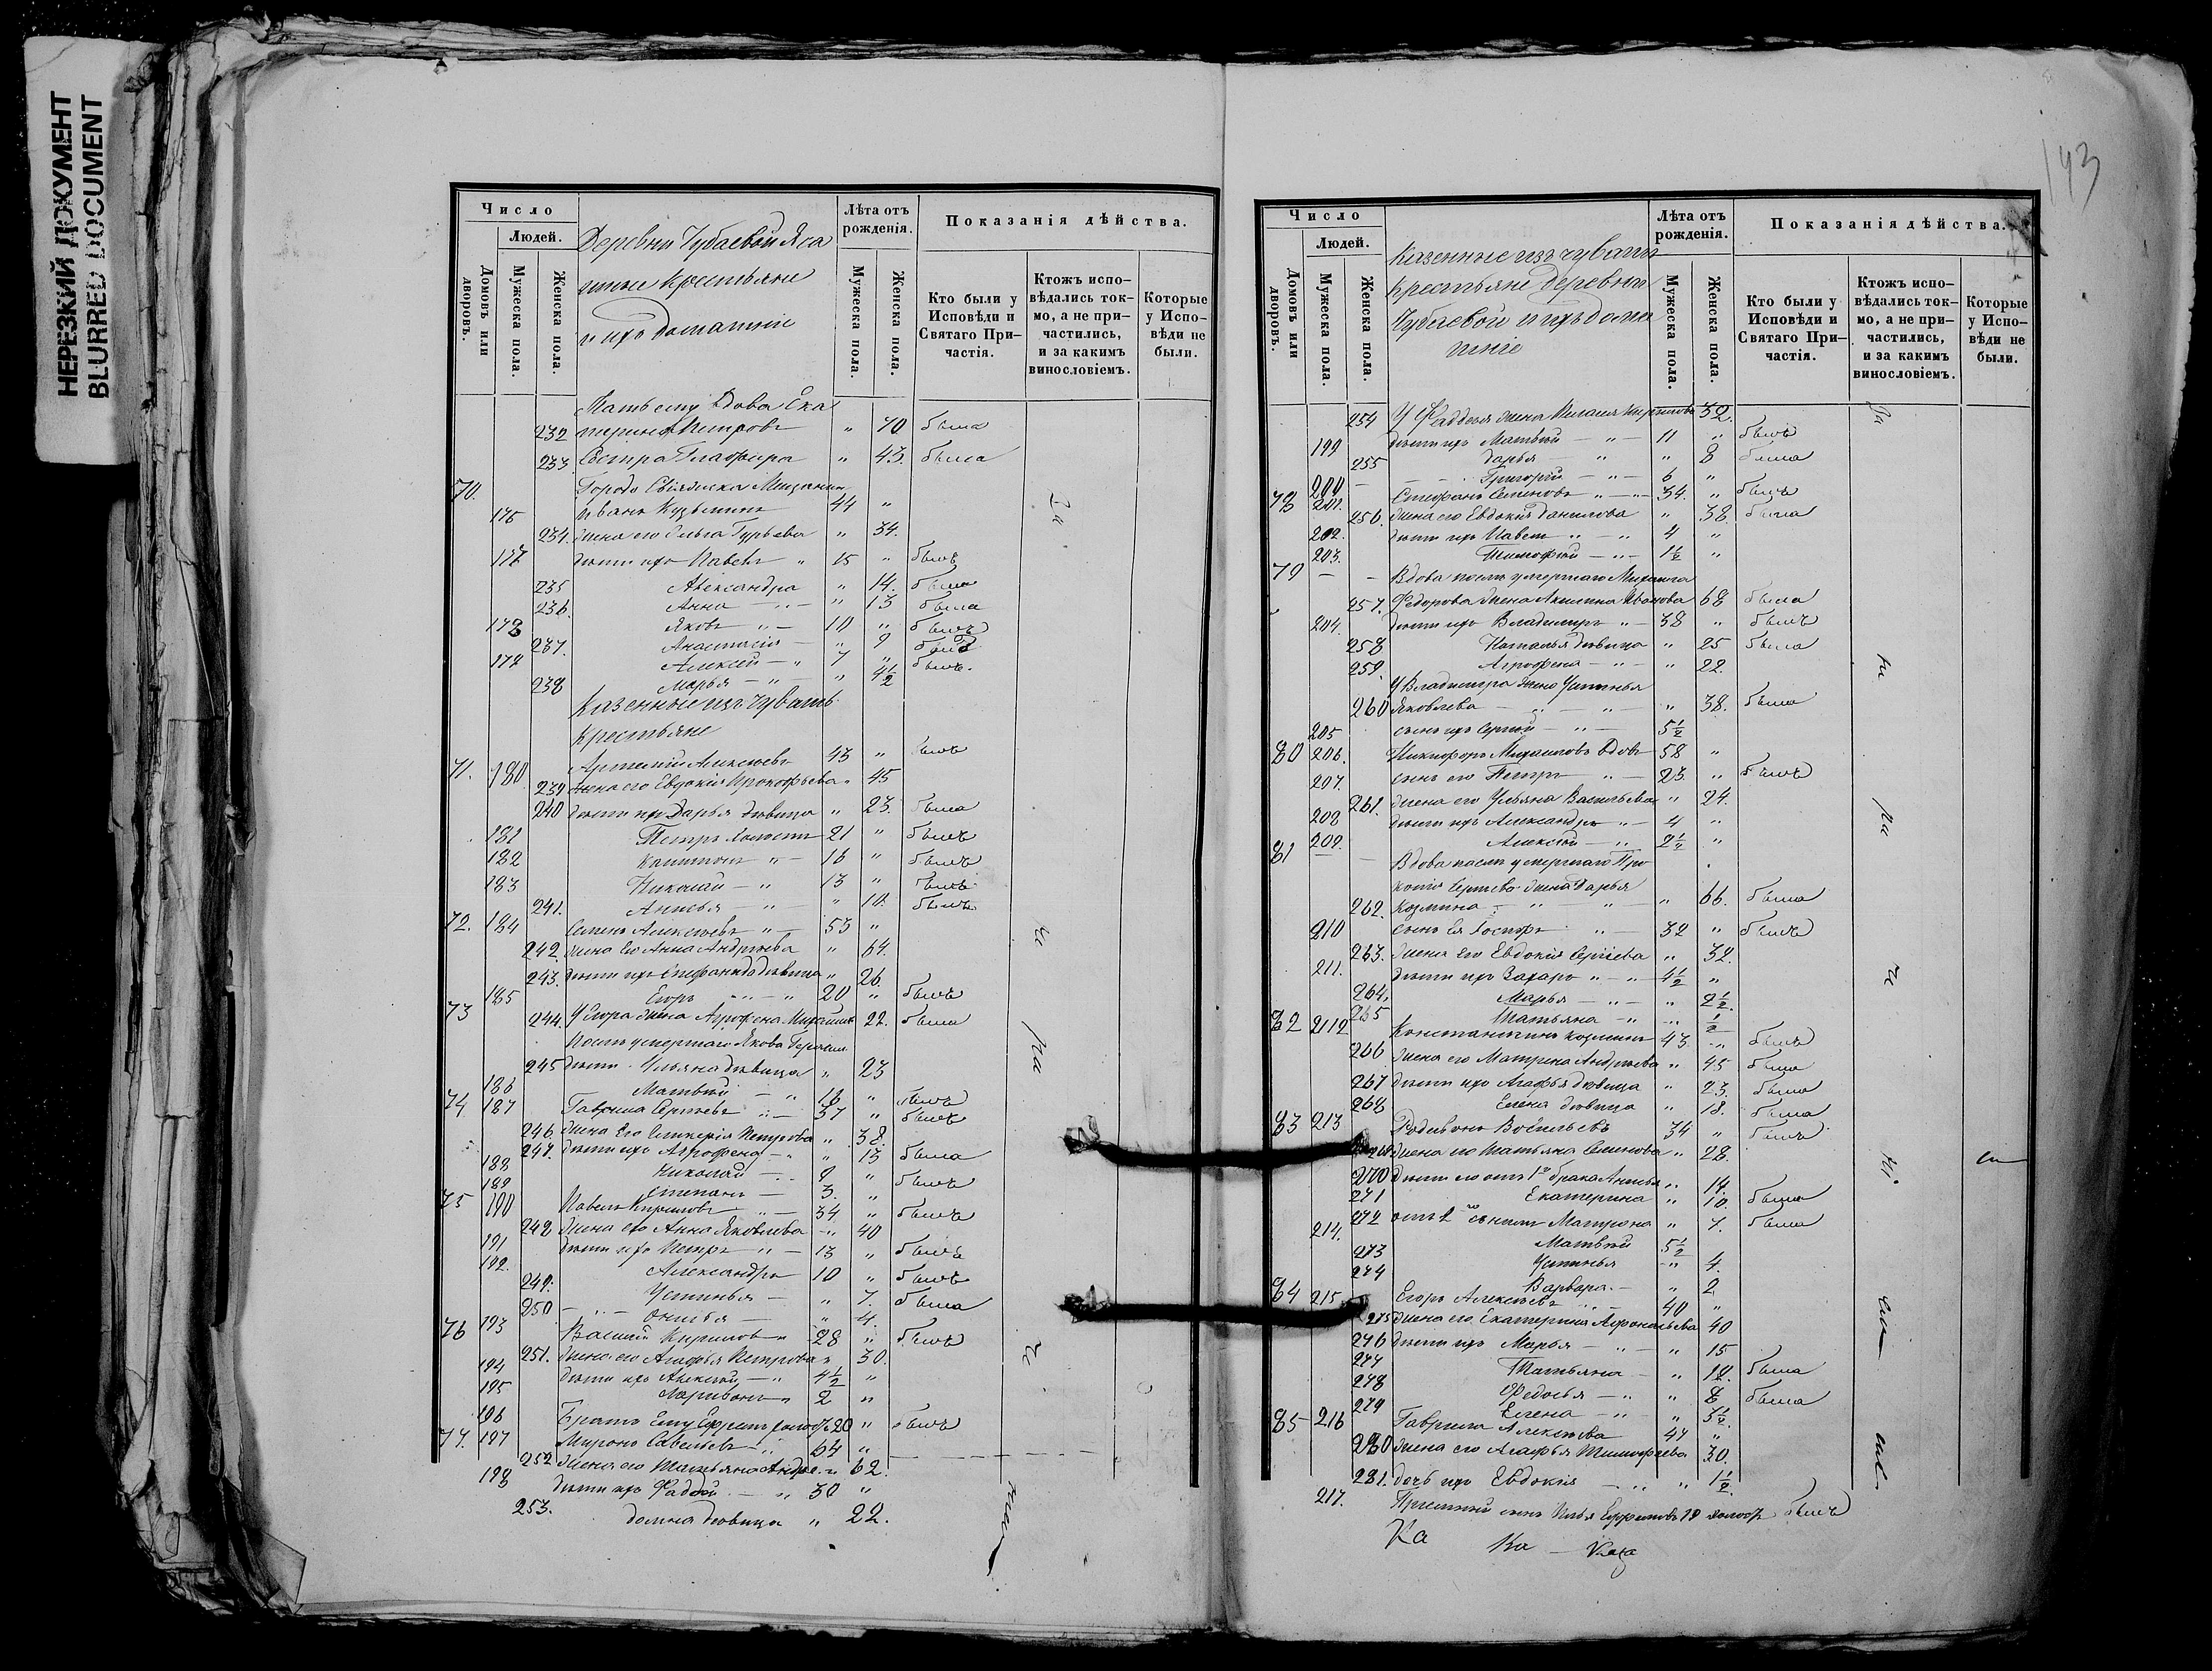 НЕРЕЗКИЙ ДОКУМЕНТ
BLURRED DOCUMENT
193
Число
Людей.
Домовъ или дворовъ.
Мужеска пола.
Женска пола.
Деревни Чубаевой Яса
шные крестьяне
и ихъ домашніе
Лѣта отъ рожденія.
Мужеска пола.
Женска пола.
Показанія дѣйства.
Кто были у Исповѣди и Святаго Причастія.
Ктожъ исповѣдались токмо, а не причастились, и за какимъ винословіемъ.
Которые у Исповѣди не были.
Мать ему вдова Ека
232 терина Петрова " 70 была
233. Сестра Глафира " 43. была
70. Города Свіяжска Мещанин
176 Иванъ Кузьминъ 44 "
234. жена его Ольга Гурьева " 34.
177 дѣти ихъ Павелъ " 15 " былъ
235 Александра " 14. была
236. Анна " 13 была
178 Яковъ " 10 " былъ
237. Анастасія " 9
179 Алексѣй " 7 " былъ.
238 Марья " " 4½
Казенные изъ чувашъ
крестьяне
71. 180 Артемій Алексѣевъ 43 " былъ
239 жена его Евдокія Прокофьева " 45
240 дѣти ихъ Дарья дѣвица " 23. была
181 Петръ холостъ 21 " былъ
182 Капитонъ " 16 " былъ
183 Николай " 13 " былъ
241. Анисья " " 10.
72. 184 Семенъ Алексѣевъ " 53 "
242. жена его Анна Андреева " 64.
243. дѣти ихъ Степанида дѣвица " 26.
185 Егоръ " 20 " былъ
73 244. У Егора жена Агрофена " 22. была
Послѣ умершаго Якова
245 дѣти Ульяна дѣвица " 23
186 Матвѣй " 16 " былъ
74 187 Гаврила Сергѣевъ 37 " былъ
246. жена его Гликерія Петрова " 38.
247. дѣти ихъ Агрофена " 13 была
188 Николай 9 " былъ
189 Степанъ 3. "
75 190 Павелъ Кириловъ 34 " былъ
248 жена его Анна Яковлева " 40
191 дѣти ихъ Петръ " 13 " былъ
192. Александръ 10 " былъ
249. Устинья " 7. была
250 Анисья " 4.
76 193 Василій Кириловъ " 28 " былъ
251. жена его Агафья Петрова " 30.
194 дѣти ихъ Алексѣй " 4½ "
195 Ларивонъ " 2 "
196 Братъ ему Ефремъ холостъ 20 " былъ
77. 197 Миронъ Савельевъ 64 "
252 жена его Татьяна Андре. " 62.
198 дѣти ихъ Фадей " 30 "
253. Домна дѣвица " 22.
Число
Людей.
Домовъ или дворовъ.
Мужеска пола.
Женска пола.
Казенные изъ чувашъ
крестьяне деревни
Чубаевой и ихъ дома
шніе
Лѣта отъ рожденія.
Мужеска пола.
Женска пола.
Показанія дѣйства.
Кто были у Исповѣди и Святаго Причастія.
Ктожъ исповѣдались токмо, а не причастились, и за какимъ винословіемъ.
Которые у Исповѣди не были.
254 У Фаддея жена Пелагея Кирилова 32.
199 дѣти ихъ Матвѣй " 11 " былъ
255 Дарья " " 8 была
200 Григорій " 6 "
78 201. Стефанъ Семеновъ " 34. " былъ
256. жена его Евдокія Данилова " 38. была
202. дѣти ихъ Павелъ " 4 "
203. Тимофѣй " 1½ "
79 Вдова послѣ умершаго Михаила
257. Федорова жена Акилина Иванова 68 была
204. дѣти ихъ Владимиръ " 38 " былъ
258 Наталья дѣвица " 25 была
259. Агрофена " " 22.
У Владимира жена Устинья
260 Яковлева " " 38. была
205 сынъ ихъ Сергѣй " 5½
80 206. Никифоръ Михаиловъ вдов 58 "
207. сынъ его Петръ " 23. " былъ
261. жена его Ульяна Васильева " 24.
208 дѣти ихъ Александръ " 4 "
209. Алексѣй " 2½ "
81 Вдова послѣ умершаго Про
копія Сергѣева жена Дарья
262. Козмина " " 66. была
210 сынъ ея Іосифъ " 32 " былъ
263. жена его Евдокія Сергѣева " 32.
211. дѣти ихъ Захаръ " 4½ "
264. Марья " " 2½.
265 Татьяна " ½
82 2112 Константинъ Козминъ 43 " былъ
266 жена его Матрена Андреева " 45 была
267 дѣти ихъ Агафья дѣвица " 23. была
268 Елена дѣвица " 18. была
83 213 Родивонъ Васильевъ 34 " былъ
269 жена его Татьяна Семенова " 28.
270 дѣти его отъ 1го брака Анисья " 14.
271 Екатерина " 10. была
272 отъ 2го съ нимъ Матрона " 7. была
214. Матвѣй 5½
273 Устинья " 4.
274 Варвара. " 2
84 215 Егоръ Алексѣевъ 40 "
275 жена его Екатерина Афонасьева 40
276 дѣти ихъ Марья " 15
277 Татьяна " 12. была
278 Федосья " 8 была
279 Елена " 3½.
85 216 Гаврила Алексѣева 47 "
280 жена его Агафья Тимофеева 30.
281. дочь ихъ Евдокія " 1½.
217. Пріемный сынъ Илья Ефремовъ 19 холостъ былъ